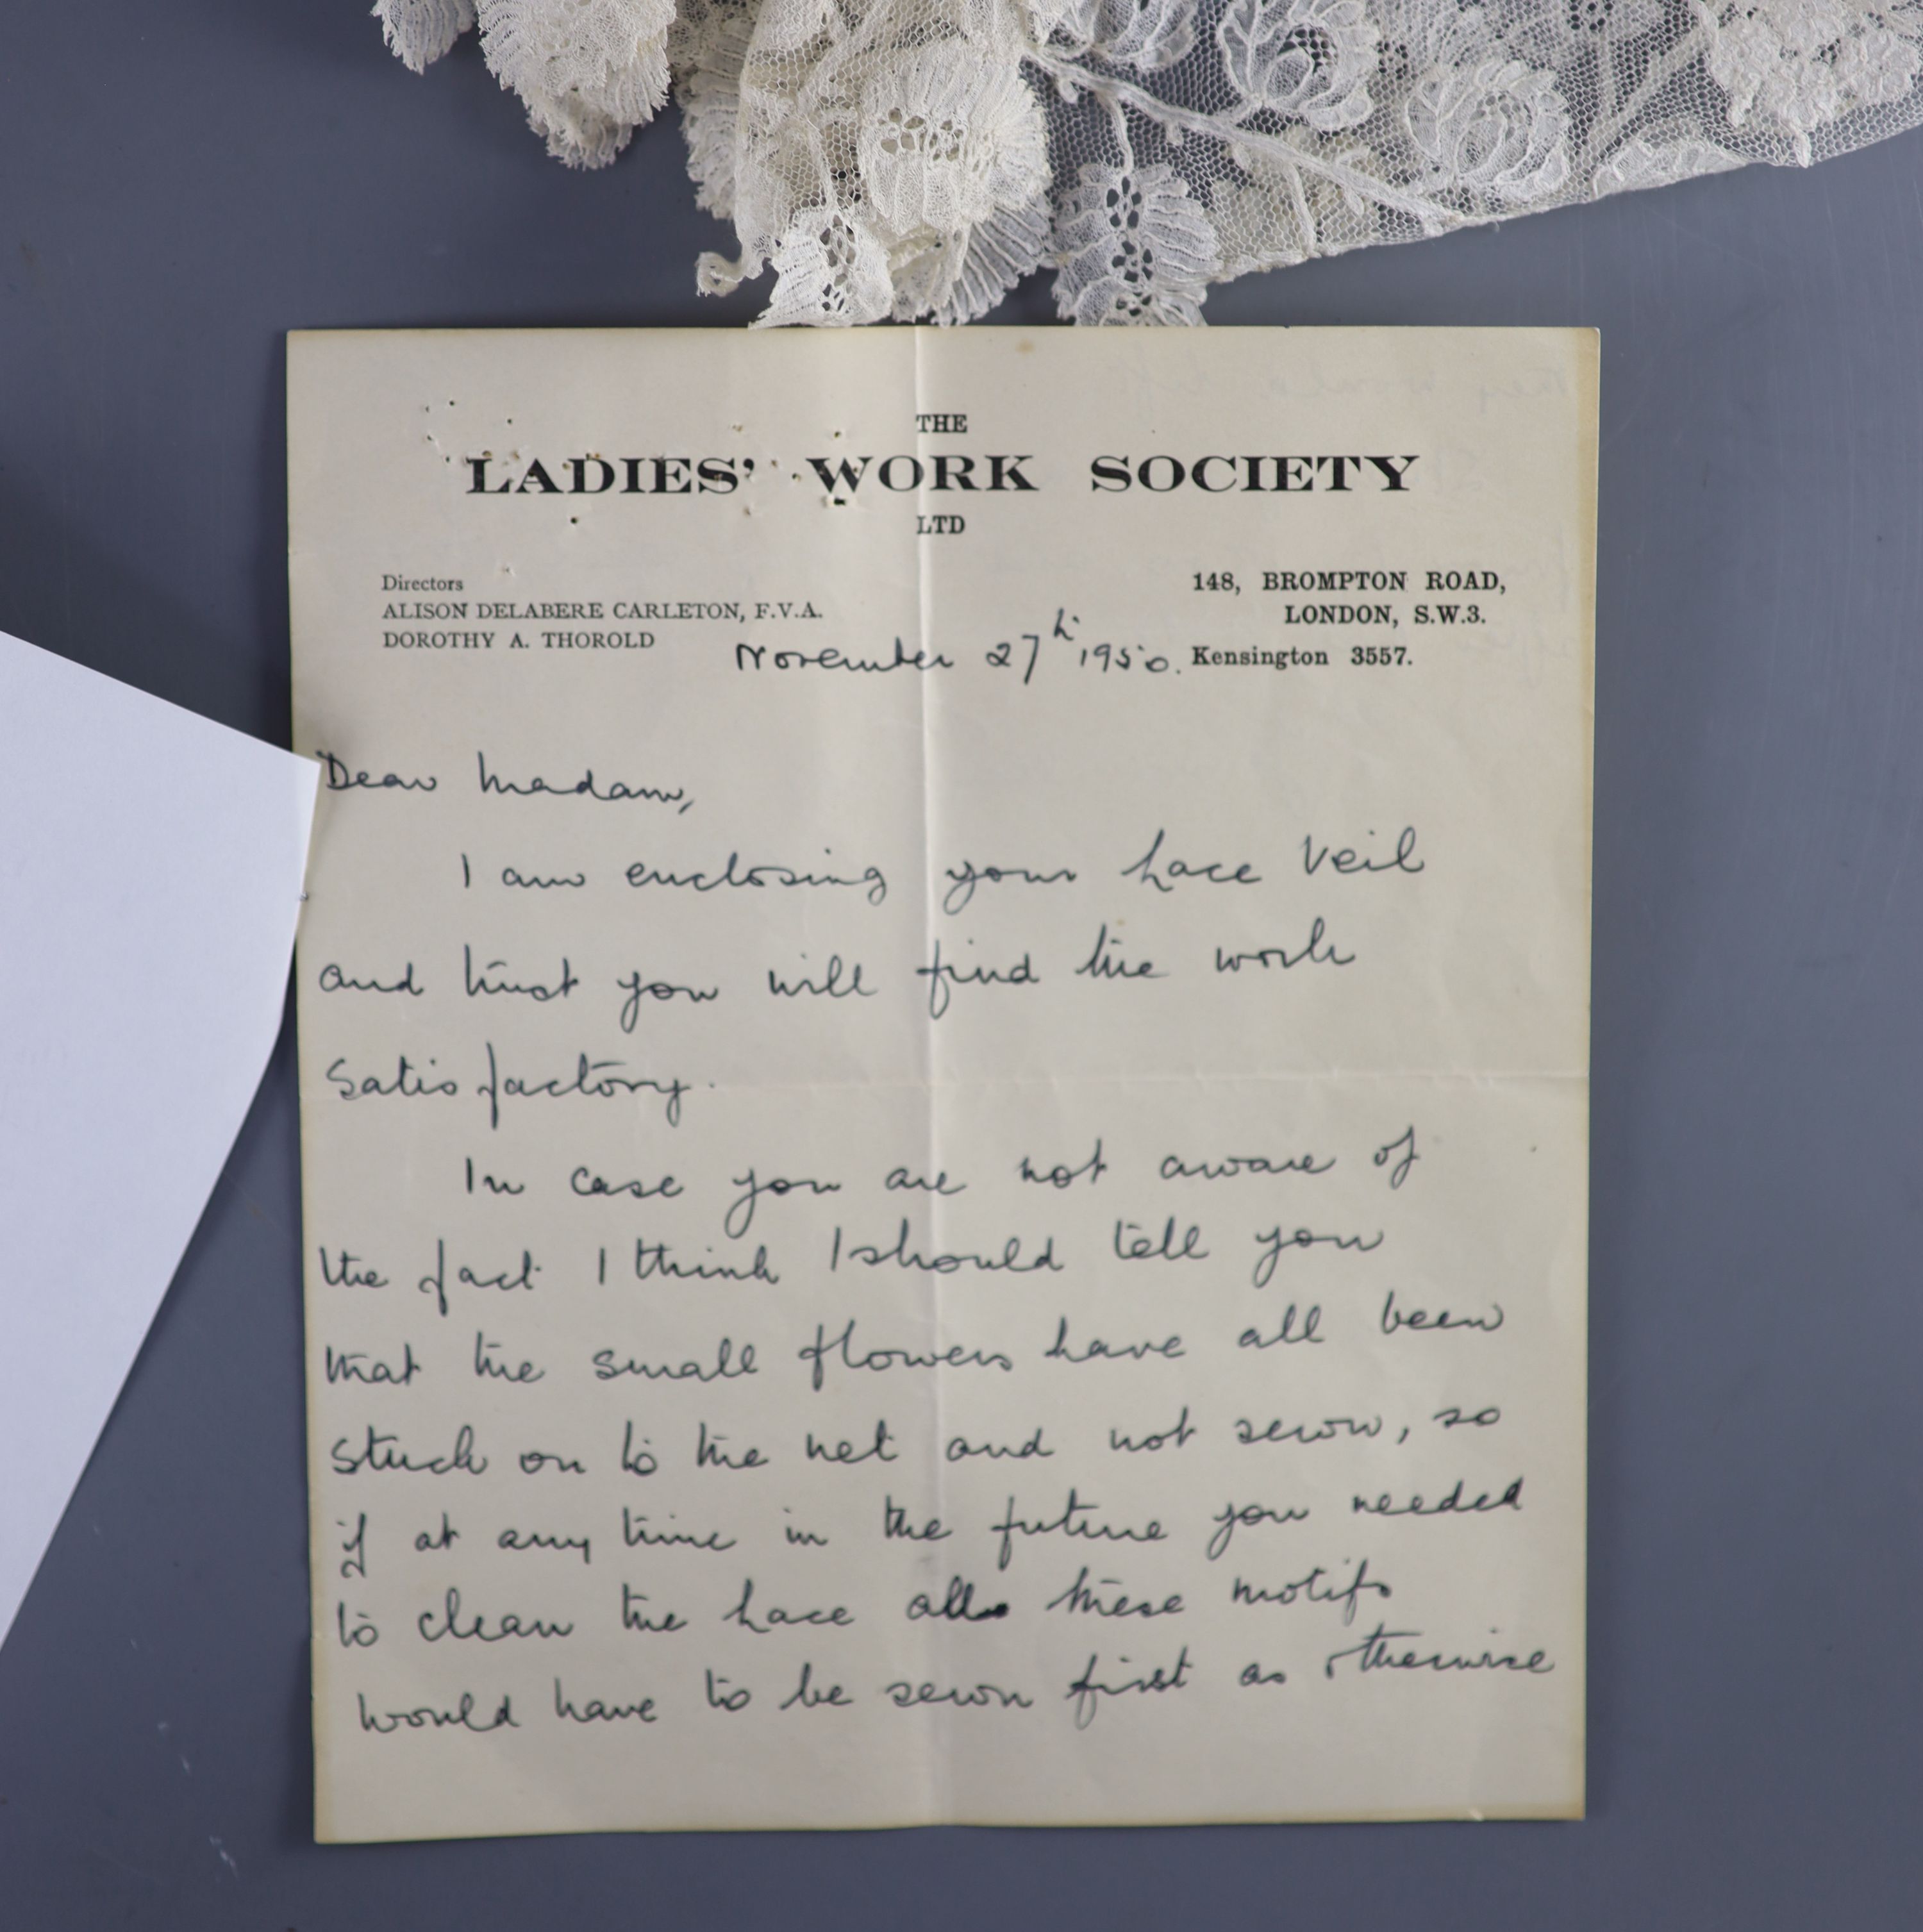 THE
LADIES' WORK SOCIETY
LTD
Directors
ALISON DELABERE CARLETON, F.V.A.
DOROTHY A. THOROLD
148, BROMPTON ROAD,
LONDON, S.W.3.
Kensington 3557.
November 27th 1950.
Dear Madam,
I am enclosing your Lace Veil
and trust you will find the work
satisfactory.
In case you are not aware of
the fact I think I should tell you
that the small flowers have all been
stuck on to the net and not sewn, so
if at any time in the future you needed
to clean the Lace all these motifs
would have to be sewn first as otherwise